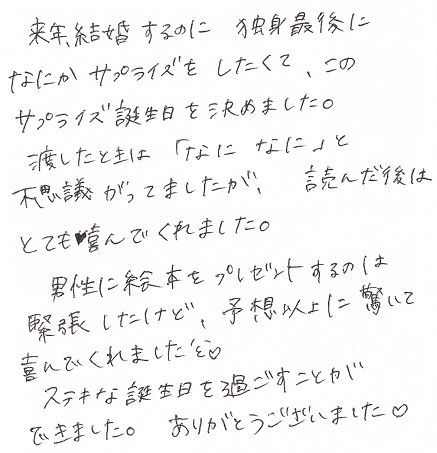 来年、結婚するのに 独身最後に
なにか サプライズを したくて、この
サプライズ誕生日を決めました。
渡したときは 「なに なに」と
不思議がってましたが、 読んだ後は
とても♥喜んでくれました。
男性に絵本をプレゼントするのは
緊張したけど、予想以上に驚いて
喜んでくれました♡
ステキな誕生日を過ごすことが
できました。 ありがとうございました♡